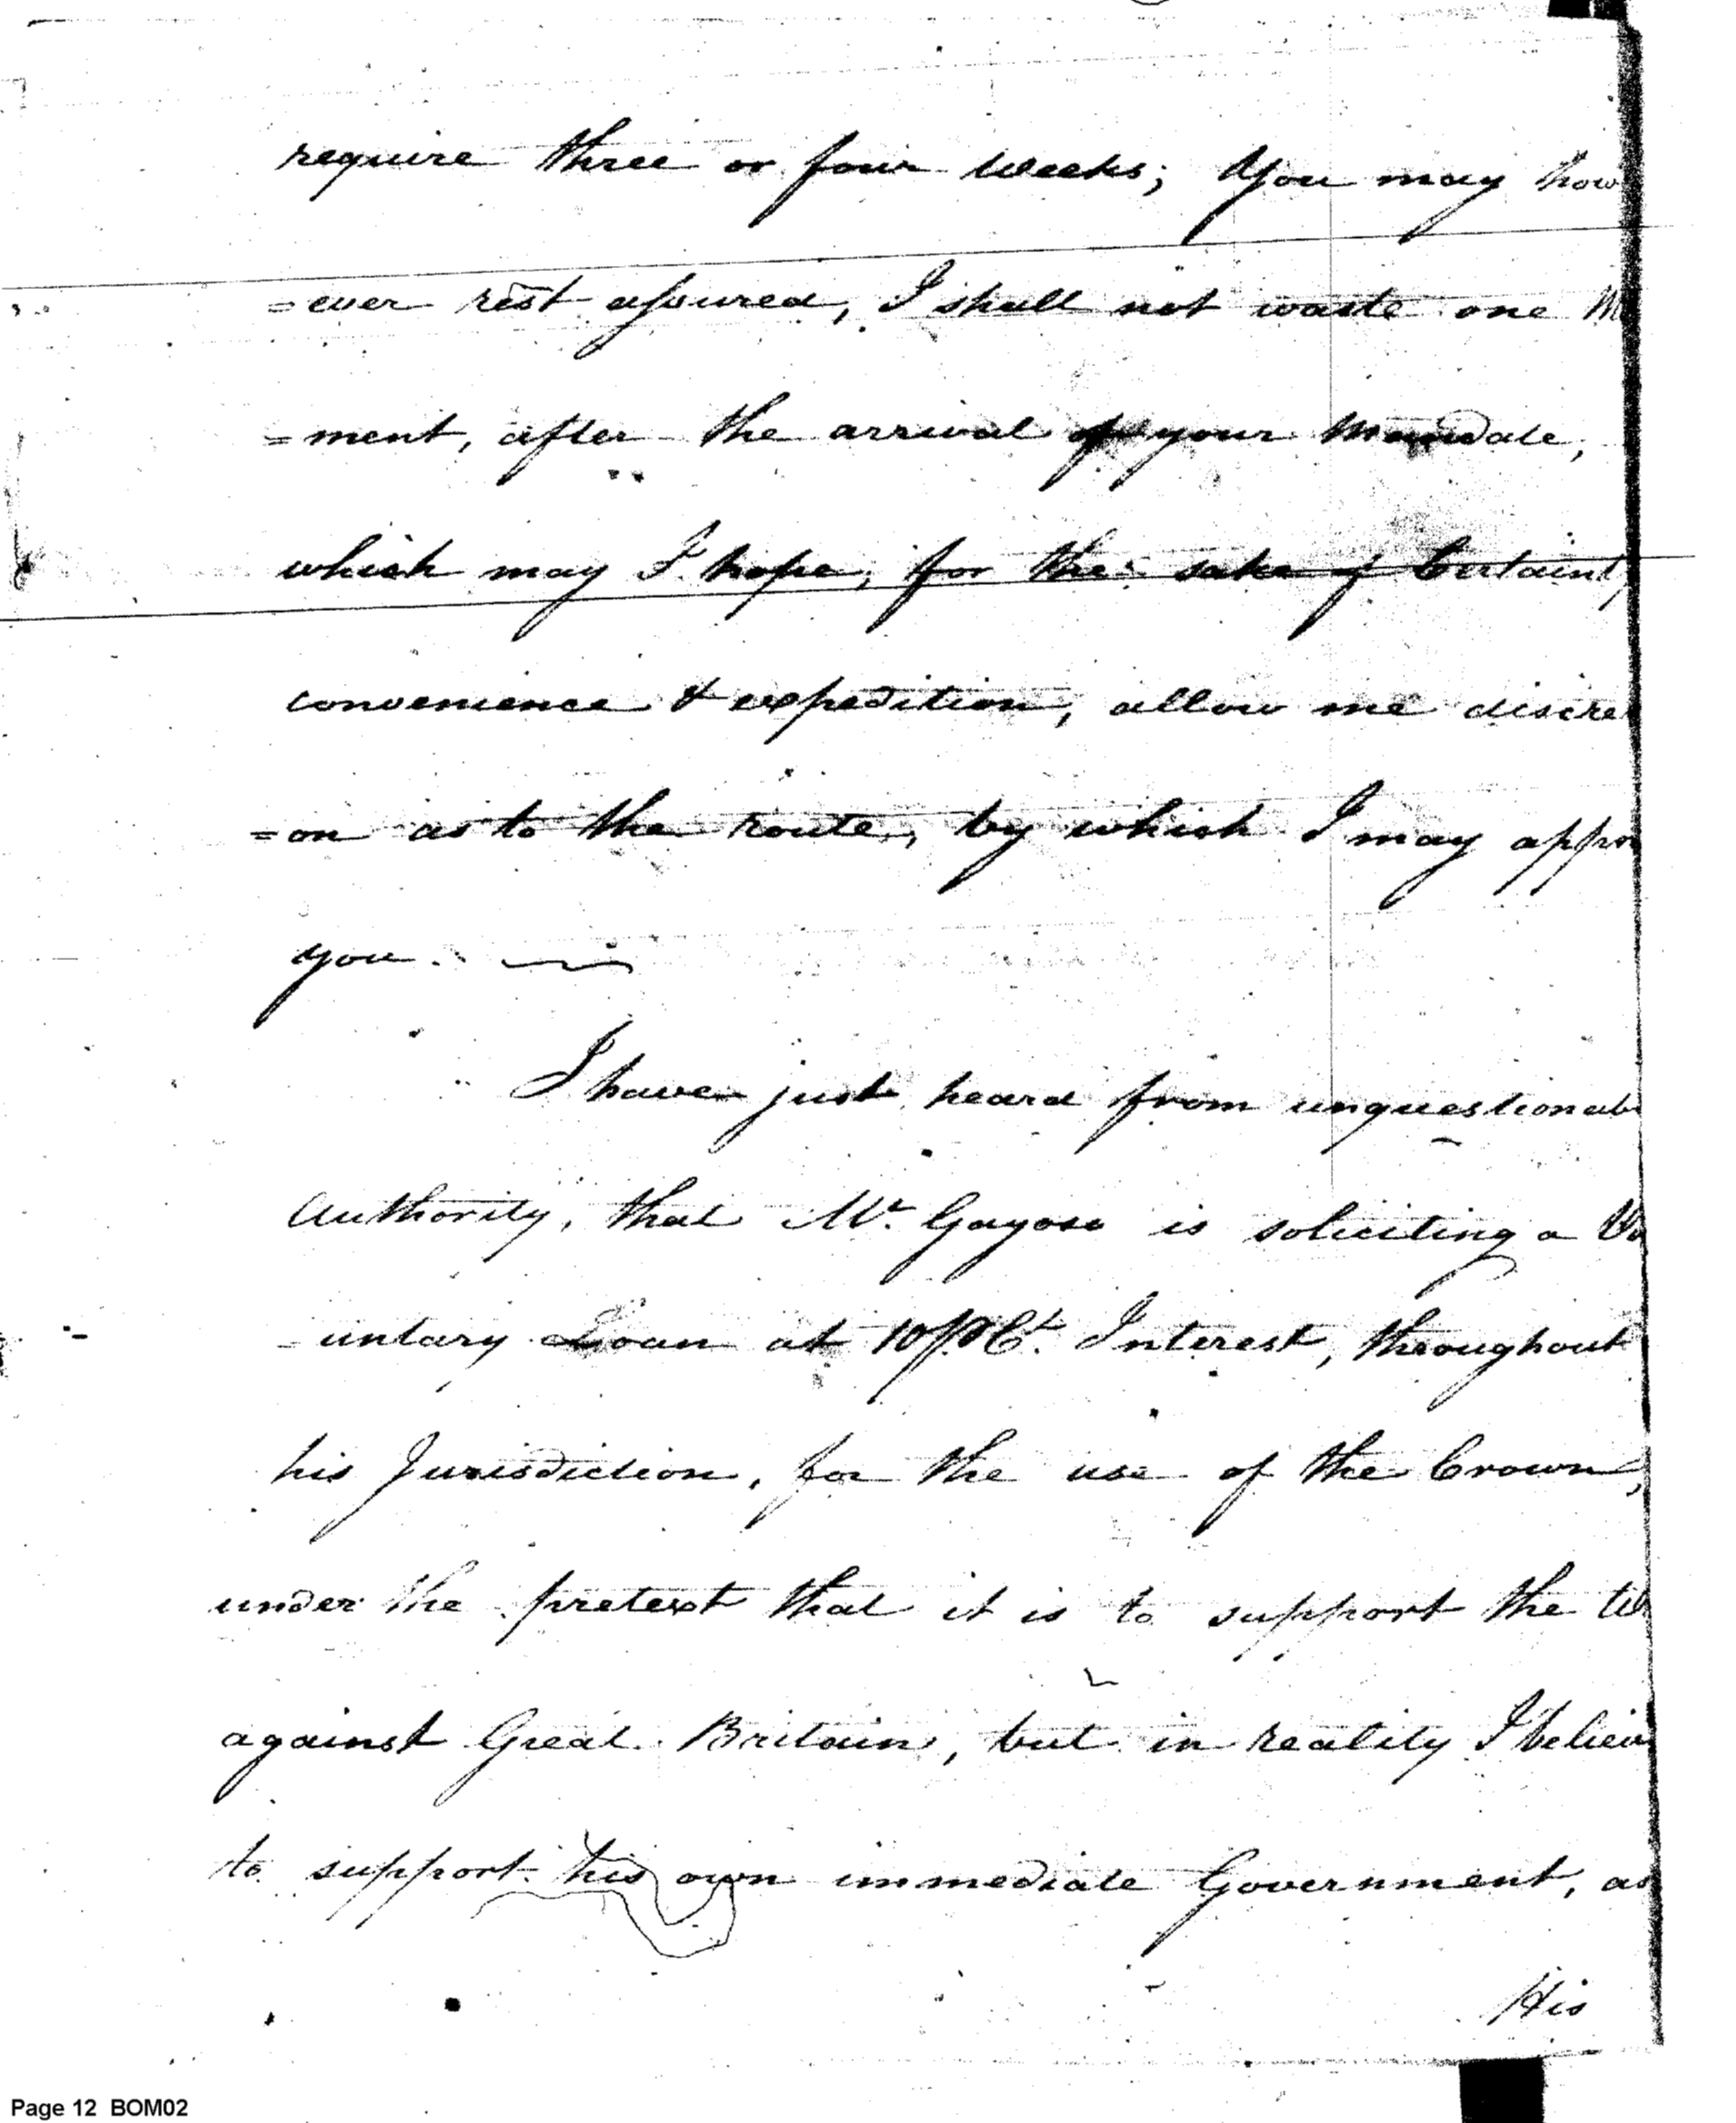 require three or four Weeks; You may how
=ever rest assured, I shall not waste one M
=ment, after the arrival of your Mandate,
which may I hope, for the sake of Certaint
convenience & expedition, allow me discre
=on as to the route, by which I may appro
you.
I have just heard from unquestionab
Authority, that Mr. Gayoso is soliciting a Vo
-untary Loan at 10 p Ct. Interest, throughout
his Jurisdiction, for the use of the Crown,
under the pretext that it is to support the W
against Great Britain, but in reality I believ
to support his own immediate Government, as
His
Page 12 BOM02